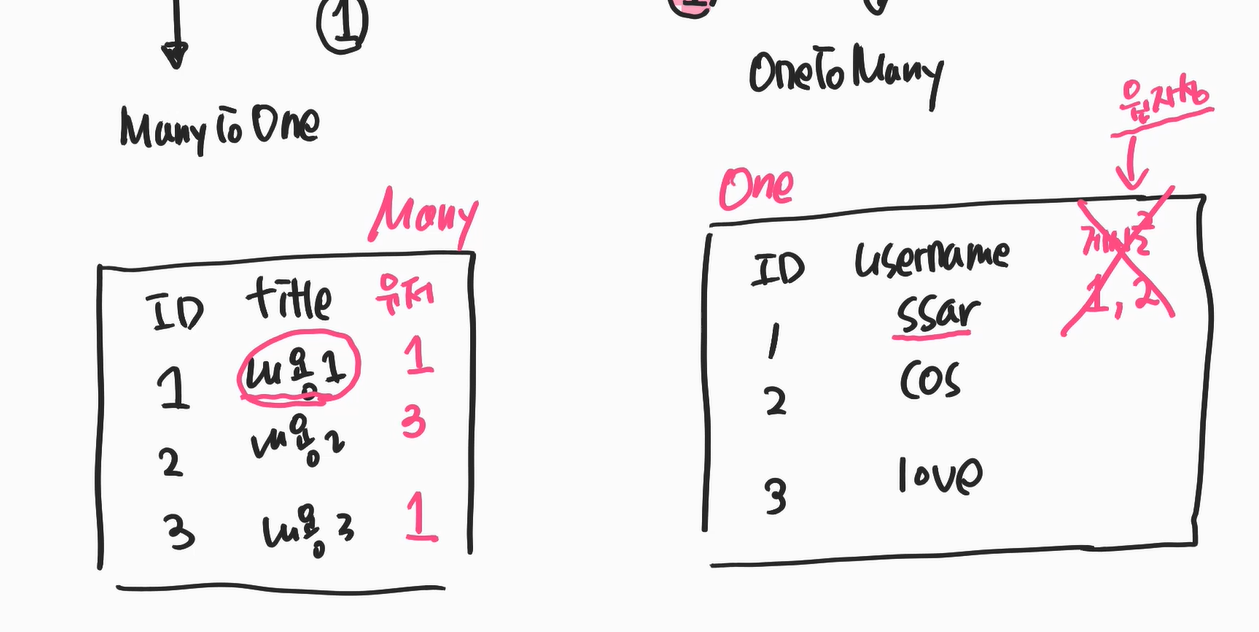 1
ManyToOne
Many
ID title 유저
1 내용1 1
2 내용2 3
3 내용3 1
OneToMany
원자성
One
ID username
1 ssar 1, 2
2 cos
3 love